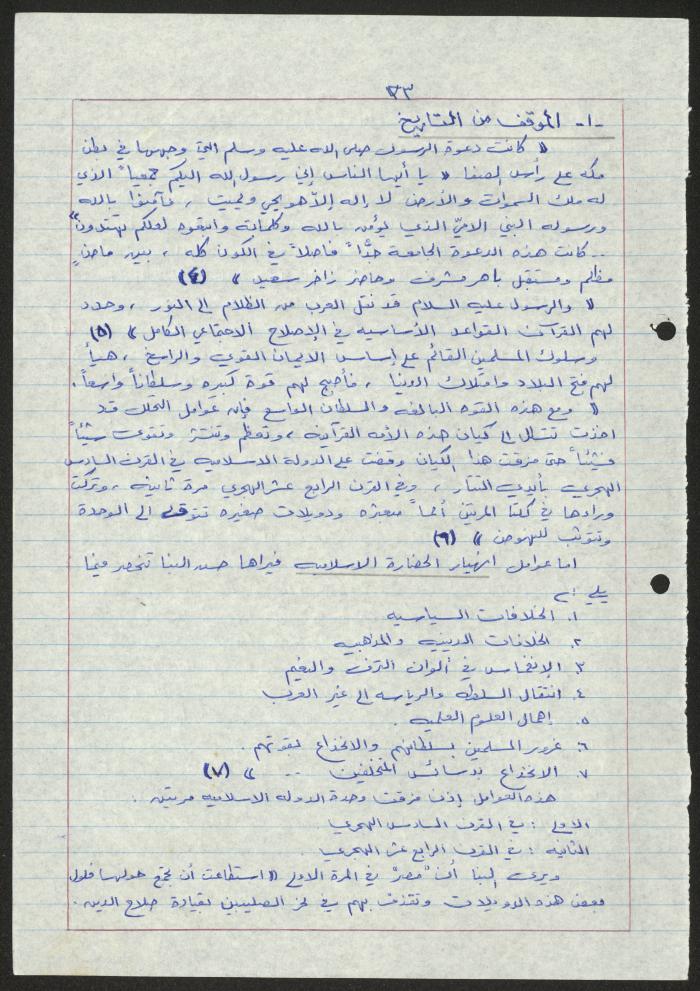 ٢٣
-١- الموقف من التاريخ
« كانت دعوة الرسول صلى الله عليه وسلم التي وجهها في بطن
مكه على رأس الصفا « يا أيها الناس إني رسول الله اليكم جميعاً الذي
له ملك السموات والأرض لا إله إلا هو يحي ويميت ، فآمنوا بالله
ورسوله النبي الاميّ الذي يؤمن بالله وكلماته واتبعوه لعلكم تهتدون"
.. كانت هذه الدعوة الجامعة حدّاً فاصلاً في الكون كله ، بين ماضٍ
مظلم ومستقبل باهر مشرف وحاضر زاخر سعيد » (٤)
« والرسول عليه السلام قد نقل العرب من الظلام الى النور ، وحدد
لهم القرآن القواعد الأساسيه في الإصلاح الاجتماعي الكامل » (٥)
وسلوك المسلمين القائم على اساس الايمان القوي والراسخ ، هيأ
لهم فتح البلاد وامتلاك الدنيا ، فأصبح لهم قوة كبيره وسلطاناً واسعاً.
« ومع هذه القوه البالغه والسلطان الواسع فإن عوامل التحلل قد
اخذت تتسلل الى كيان هذه الأمه القرآنيه ، وتعظم وتنتشر وتقوى شيئاً
فشيئاً حتى مزقت هذا الكيان وقضت على الدولة الاسلاميه في القرن السادس
الهجري بأيدي التتار ، وفي القرن الرابع عشر الهجري مرة ثانيه ، وتركت
وراءها في كلتا المرتين أمماً مبعثره ودويلات صغيره تتوق الى الوحدة
وتتوثب للنهوض » (٦)
اما عوامل انهيار الحضارة الاسلاميه فيراها حسن البنا تنحصر فيما
يلي :
١. الخلافات السياسيه
٢. الخلافات الدينيه والمذهبيه
٣. الإنغماس في ألوان الترف والنعيم
٤. انتقال السلطه والرياسه الى غير العرب
٥. إهمال العلوم العلميه .
٦. غرور المسلمين بسلطانهم والانخداع بقوتهم .
٧. الانخداع بدسائس المتخلفين .. » (٧)
هذه العوامل إذن مزقت وحدة الدوله الاسلاميه مرتين .
الاولى : في القرن السادس الهجري
الثانيه : في القرن الرابع عشر الهجري
ويرى البنا أن "مصر" في المرة الاولى « استطاعت أن تجمع حولها فلول
بعض هذه الدويلات وتقذف بهم في نحر الصليبيين بقيادة صلاح الدين .